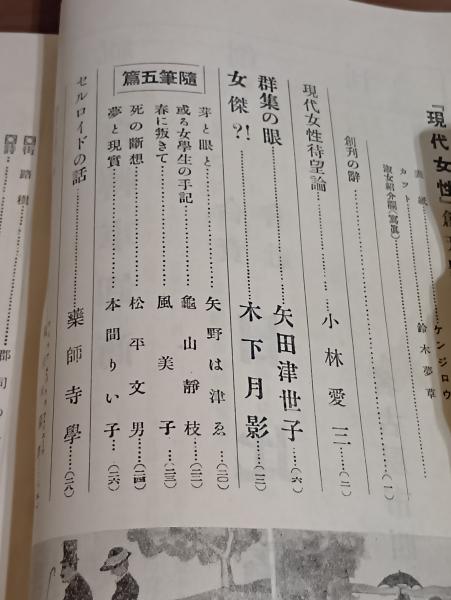 「現代女性」創刊
表紙……ケンジロウ
カット……鈴木夢草
淑女紹介欄(寫眞)……(一)
創刊の辭
現代女性待望論……小林愛三……(二)
群集の眼……矢田津世子……(六)
女傑?!……木下月影……(一三)
隨筆五篇
芽と眼と……矢野は津ゑ……(二〇)
或る女學生の手記……龜山靜枝……(二二)
春に叛きて……風美子……(二三)
死の斷想……松平文男……(二四)
夢と現實……本間りい子……(二六)
セルロイドの話……藥師寺學……(二八)
街路樹
郡司